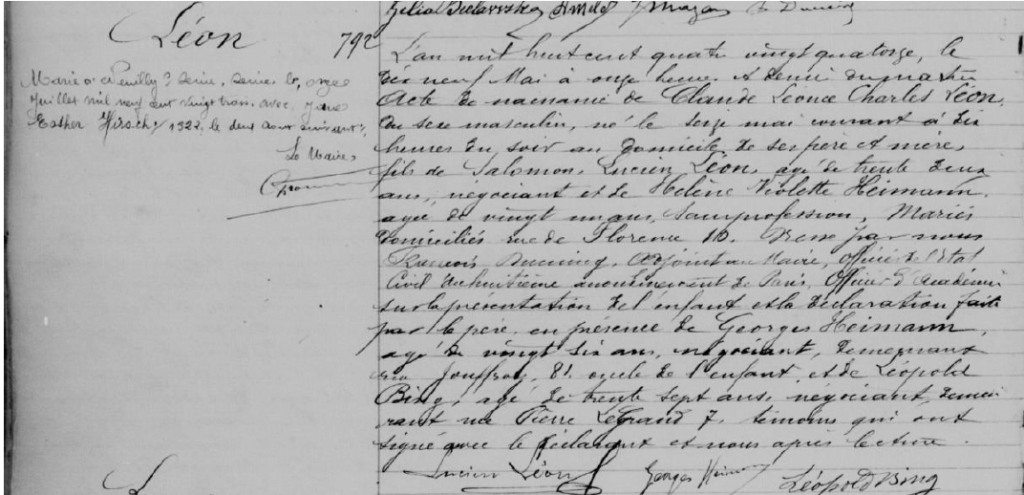 Léon
792
Marié à Neuilly s/ Seine, Seine, le onze
Juillet mil neuf cent vingt trois avec Jane
Esther Hirsch / 1923, le deux août suivant /.
Le Maire,
L'an mil huit cent quatre vingt quatorze, le
dix neuf Mai à onze heures et demie du matin
Acte de naissance de Claude Léonce Charles Léon,
du sexe masculin, né le seize mai courant à dix
heures du soir au domicile de ses père et mère,
fils de Salomon Lucien Léon, agé de trente deux
ans, négociant et de Helène Violette Heimann
agée de vingt un ans, sans profession, Mariés
domiciliés rue de Florence 10. Dressé par nous
François adjoint au Maire, Officier de l'Etat
Civil du huitième arrondissement de Paris, Officier d'Académie
sur la présentation de l'enfant et la déclaration faite
par le père en présence de Georges Heimann,
agé de vingt six ans, négociant, demeurant
rue Jouffroy, 81 oncle de l'enfant, et de Léopold
Bing, agé de trente sept ans, négociant, demeu
rant rue Pierre LeGrand 7, témoins qui ont
signé avec le déclarant et nous après lecture.
Lucien Léon Georges Heimann Léopold Bing